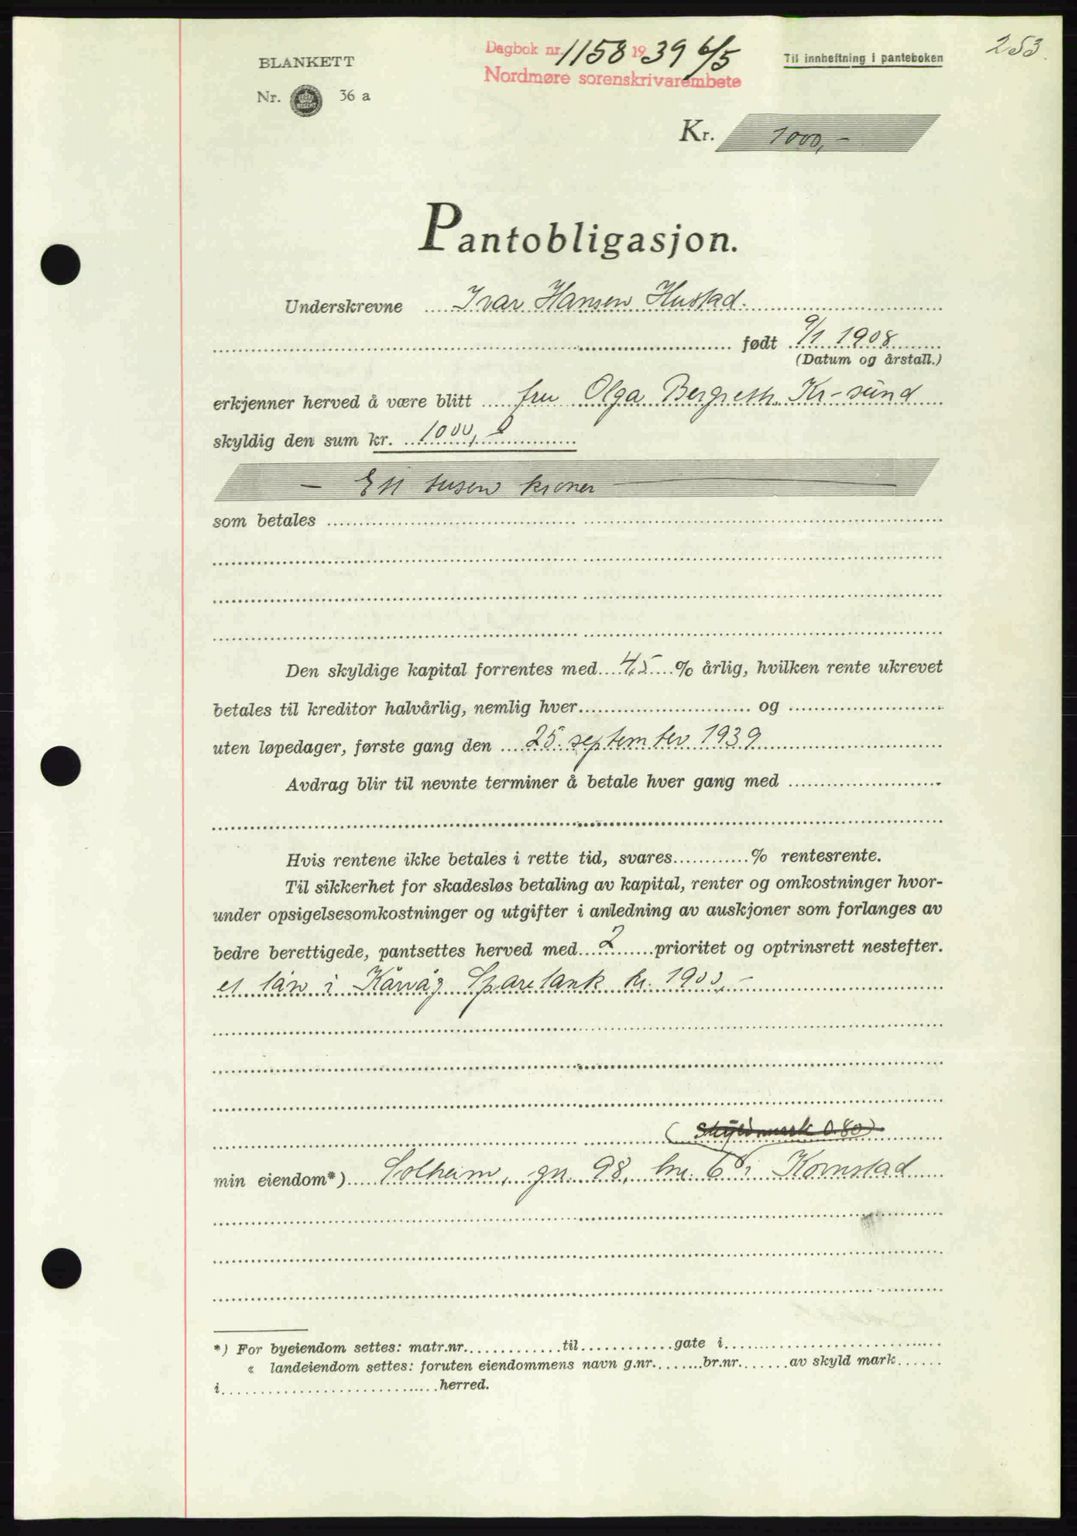 253.
Dagbok nr. 1158 1939 6/5
Nordmøre sorenskrivarembete
Til innheftning i panteboken
BLANKETT
Nr. 36 a
Kr. 1000,-
Pantobligasjon.
Underskrevne Ivar Hansen Hustad.
født 9/1 1908
(Datum og årstall.)
erkjenner herved å være blitt fru Olga Bergseth Kr-sund
skyldig den sum kr. 1000,-
- Ett tusen kroner
som betales
Den skyldige kapital forrentes med 4,5 % årlig, hvilken rente ukrevet
betales til kreditor halvårlig, nemlig hver og
uten løpedager, første gang den 25. september 1939
Avdrag blir til nevnte terminer å betale hver gang med
Hvis rentene ikke betales i rette tid, svares % rentesrente.
Til sikkerhet for skadesløs betaling av kapital, renter og omkostninger hvor-
under opsigelsesomkostninger og utgifter i anledning av auskjoner som forlanges av
bedre berettigede, pantsettes herved med 2 prioritet og optrinsrett nestefter.
et lån i Kårvåg Sparebank kr. 1900,-
(Skyldmark 0.80)
min eiendom*) Solheim, gn. 98, bn. 6 i Kornstad
*) For byeiendom settes: matr.nr. til gate i
« landeiendom settes: foruten eiendommens navn g.nr. br.nr. av skyld mark
i herred.